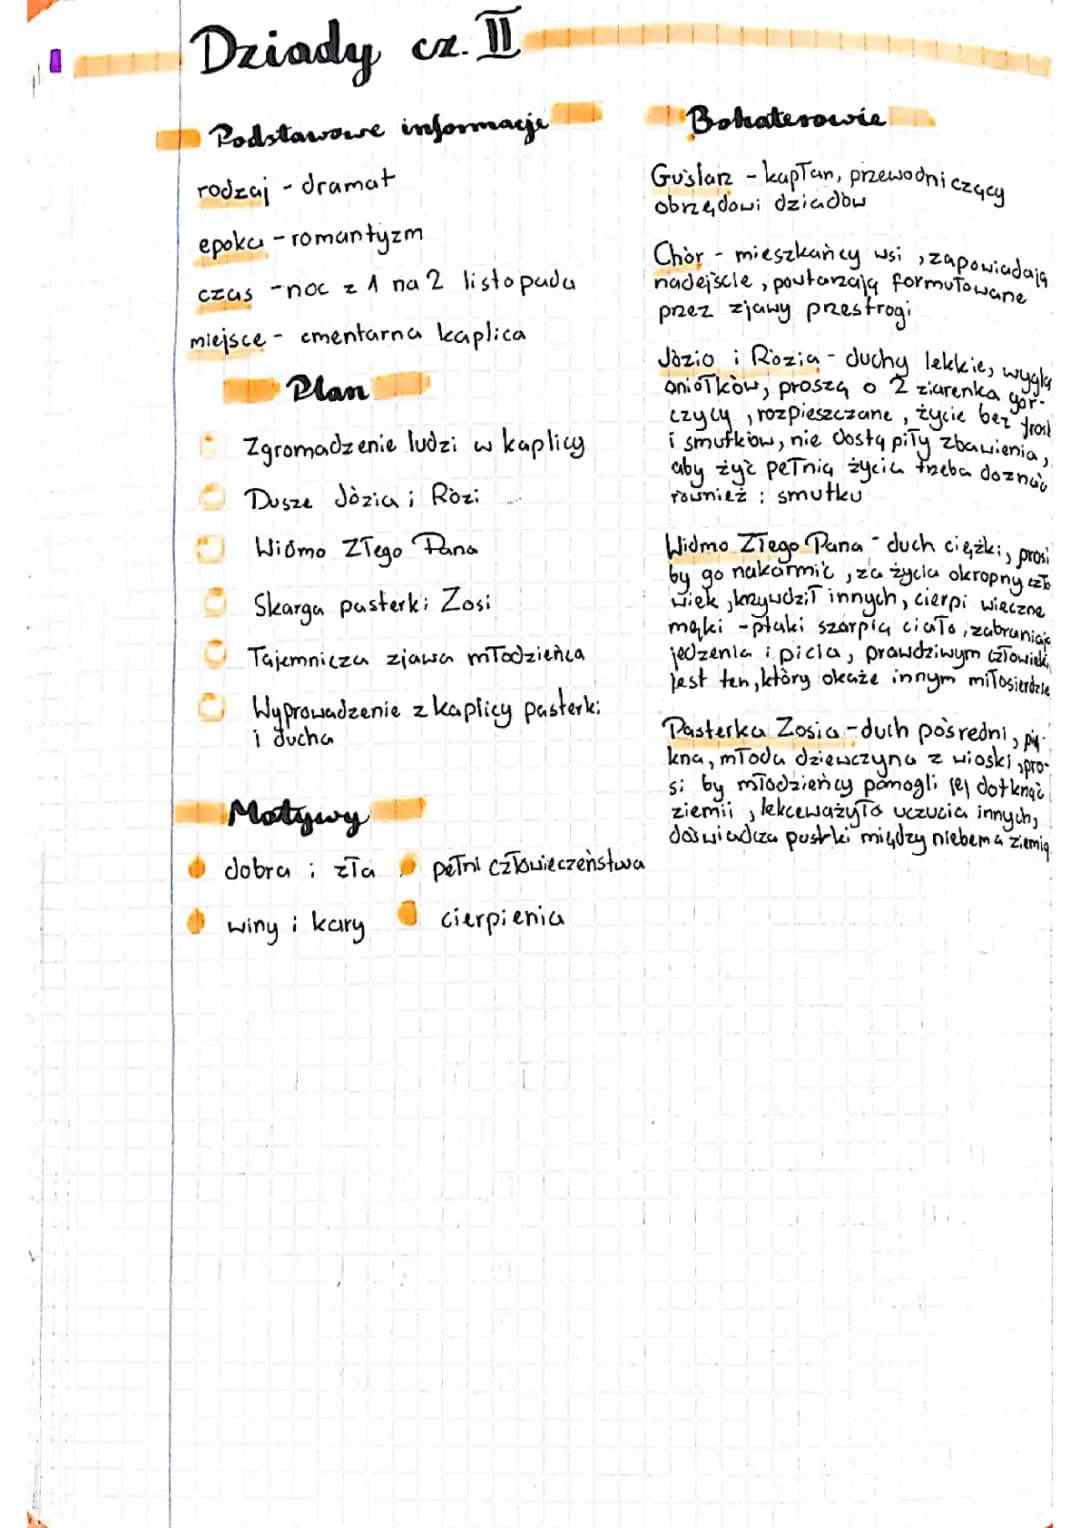 Dziady cz. II
Podstawowe informacje
rodzaj - dramat
epoka - romantyzm
czas - noc z 1 na 2 listopada
miejsce - cmentarna kaplica
Plan
Zgromadzenie ludzi w kaplicy
Dusze Józia i Rózi
Widmo Złego Pana
Skarga pasterki Zosi
Tajemnicza zjawa młodzieńca
Wyprowadzenie z kaplicy pasterki
i ducha
Motywy
dobra i zła
pełni człowieczeństwa
winy i kary
cierpienia
Bohaterowie
Guślarz - kapłan, przewodniczący
obrzędowi dziadów
Chór - mieszkańcy wsi, zapowiadają
nadejście, powtarzają formułowane
przez zjawy przestrogi
Józio i Rózia - duchy lekkie, wyglą
aniołków, proszą o 2 ziarenka gor-
czycy, rozpieszczane, życie bez trosk
i smutków, nie dostąpiły zbawienia,
aby żyć pełnią życia trzeba doznać
również i smutku
Widmo Złego Pana - duch ciężki, prosi
by go nakarmić, za życia okropny czło
wiek, krzywdził innych, cierpi wieczne
męki - ptaki szarpią ciało, zabraniają
jedzenia i picia, prawdziwym człowiek
jest ten, który okaże innym miłosierdzie
Pasterka Zosia - duch pośredni, pię-
kna, młoda dziewczyna z wioski, pro-
si by młodzieńcy pomogli jej dotknąć
ziemii, lekceważyła uczucia innych,
doświadcza pustki między niebem a ziemią